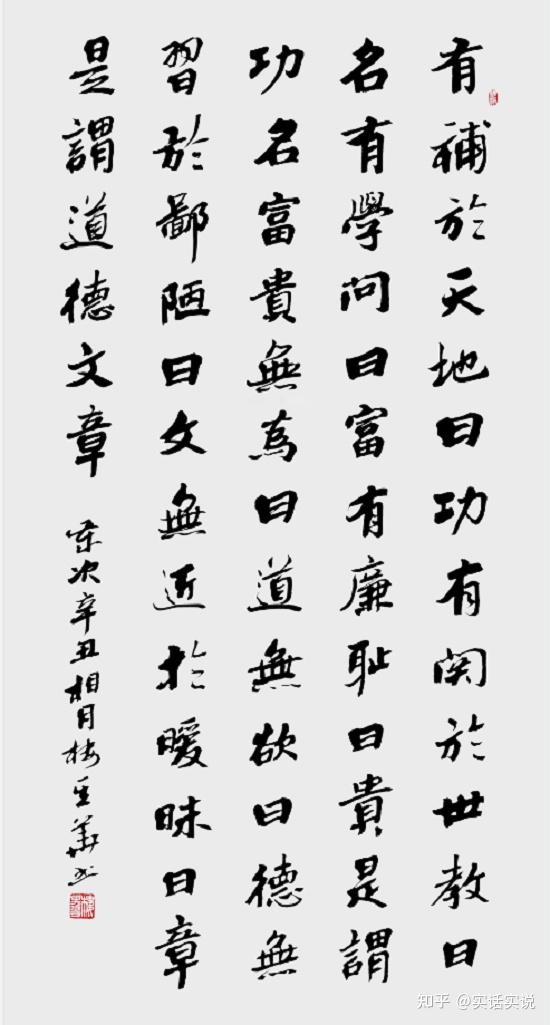 有補於天地曰功有関於世教曰
名有學問曰富有廉耻曰貴是謂
功名富貴無為曰道無欲曰德無
習於鄙陋曰文無近於曖昧曰章
是謂道德文章
歲次辛丑相月
知乎 @实话实说